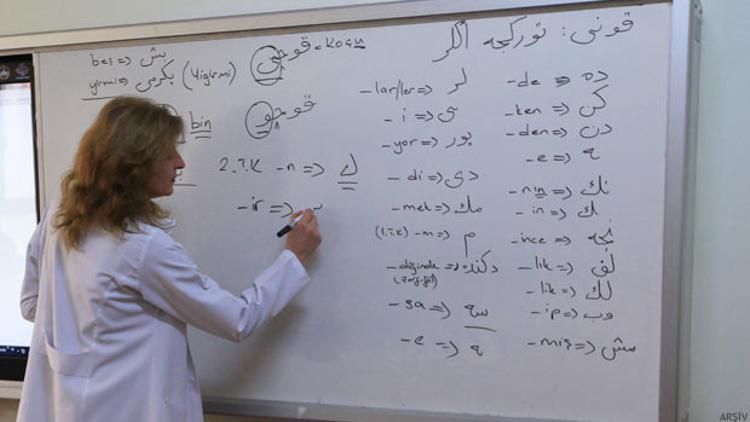 قونى: توركجه اكلر
beş => بش
yirmi => يكرمى (Yigirmi)
قوجى = koçu
قوجو
bin
2.T.K -n => ك
-ir =>
-lar/ler => لر
-i => ى
-yor => يور
-di => دى
-mek => مك
(1.T.K) -m => م
-diğinde => دكنده
-sa => سه
-e => ه
-de => ده
-ken => كن
-den => دن
-e => ه
-nın => نك
-in => ك
-ince => نجه
-lik => لق
-lik => لك
-ip => وب
-miş => مش
ARŞİV